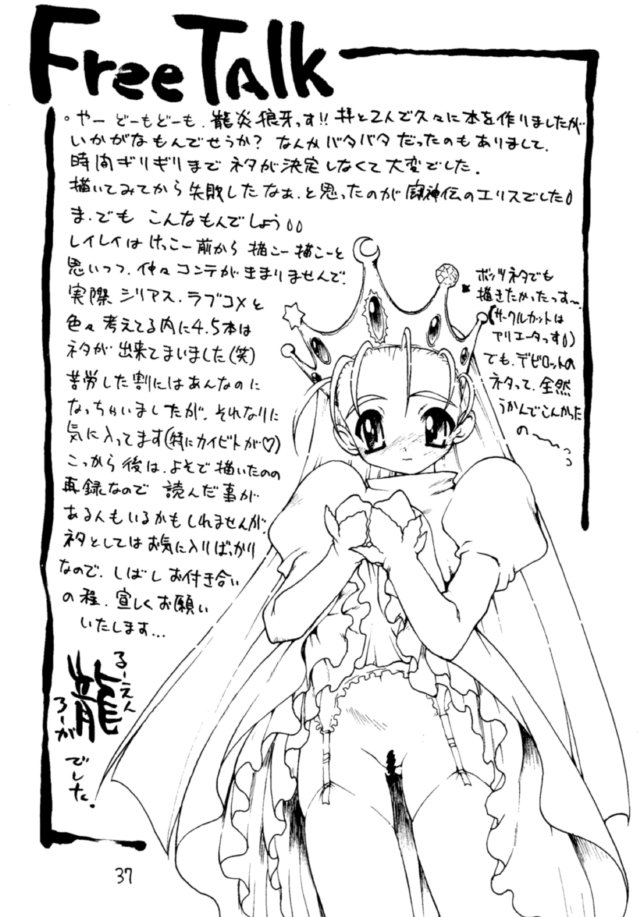 Free Talk
。やー どーもどーも、龍炎狼牙っす!! 拝と2人で久々に本を作りましたが
いかがなもんでせうか? なんかバタバタだったのもありまして、
時間ギリギリまで ネタが決定しなくて大変でした。
描いてみてから失敗したなぁ、と思ったのが 闘神伝のエリスでした
ま、でも こんなもんでしょう
レイレイは けっこー前から 描こー描こーと
思いつつ、仲々コンテがきまりませんで、
実際 シリアス、ラブコメと
色々考えてる内に 4、5本は
ネタが出来てまいました(笑)
苦労した割にはあんなのに
なっちゃいましたが、それなりに
気に入ってます(特にカイビトが♡)
こっから後は、よそで描いたのの
再録なので 読んだ事が
ある人もいるかもしれませんが、
ネタとしてはお気に入りばっかり
なので、しばし お付き合い
の程、宜しくお願い
いたします…
るーえん
龍
ろーが
でした。
ボッツネタでも
描きたかったっす〜、
(サークルカットは
でリエータっす)
でも、デビロットの
ネタって、全然
うかんでこんかった
の〜〜っっ
37